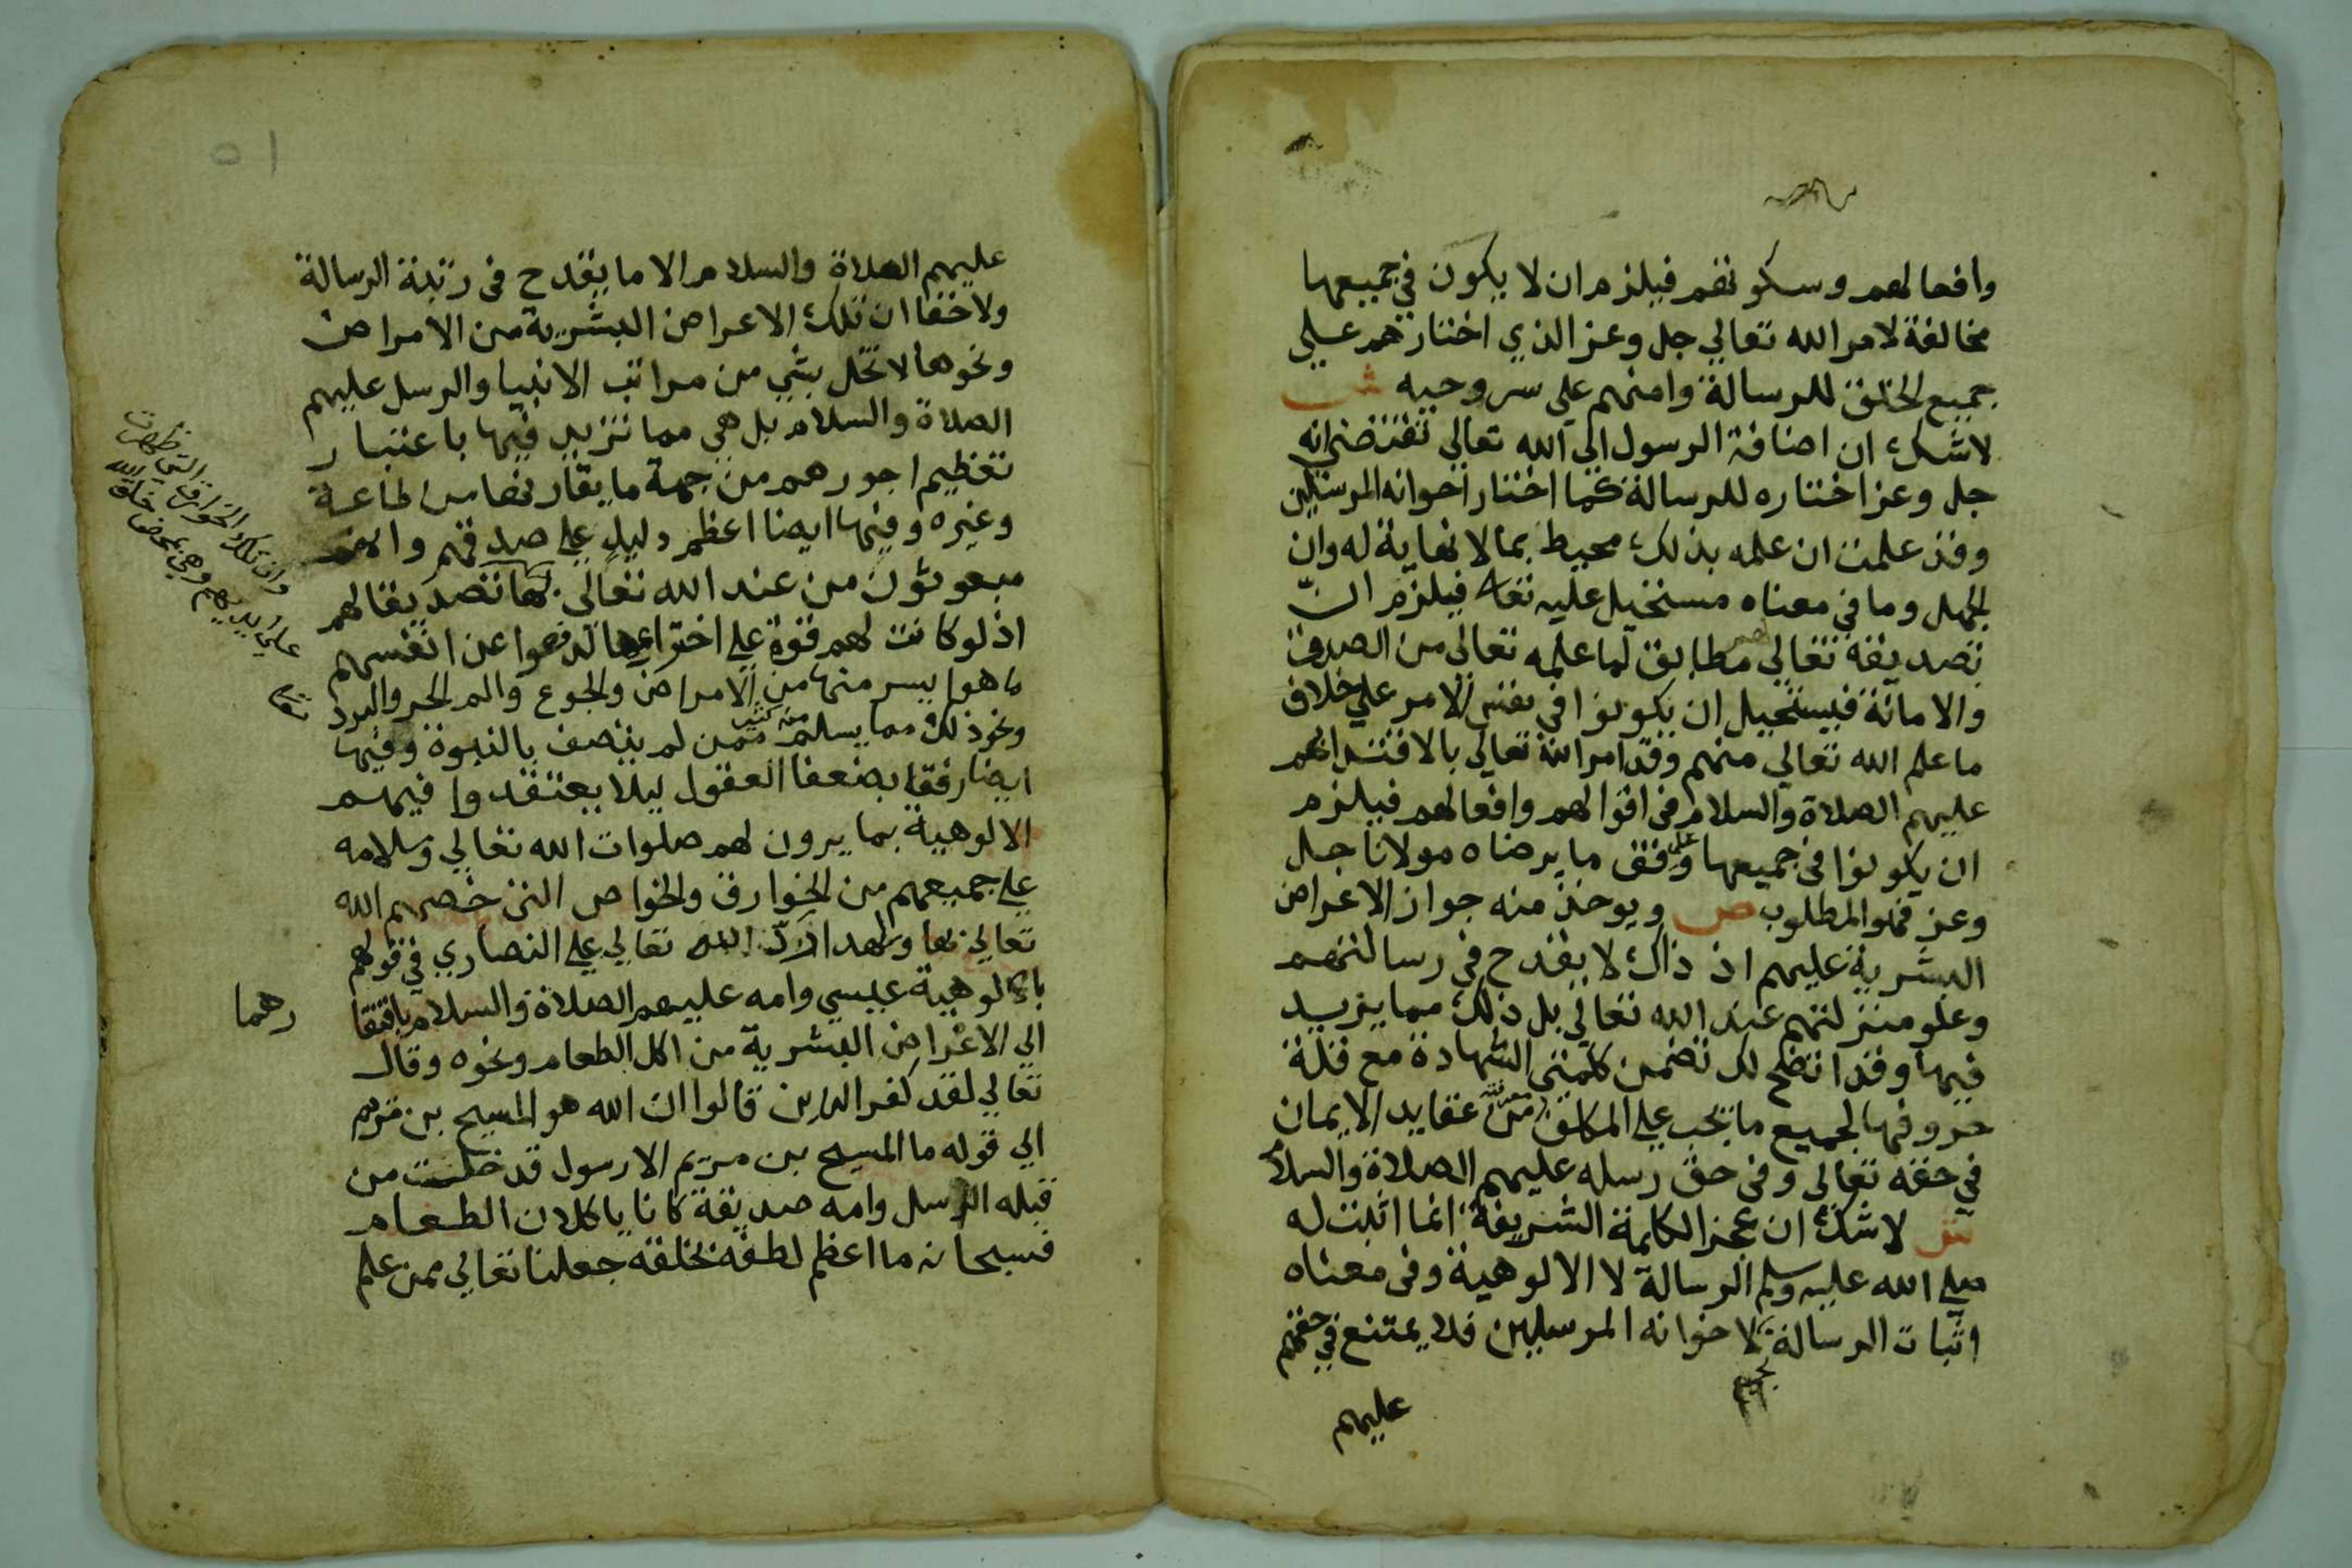 وافعالهم وسكونهم فيلزم ان لا يكون في جميعها
مخالفة لامر الله تعالي جل وعز الذي اختارهم علي
جميع الخلق للرسالة وامنهم علي سر وحيه ش
لاشك ان اضافة الرسول الي الله تعالي تقتضي انه
جل وعز اختاره للرسالة كما اختار اخوانه المرسلين
وقد علمت ان علمه بذلك محيط بما لا نهاية له وان
الجهل وما في معناه مستحيل عليه تعالي فيلزم ان
تصديقه تعالي لهم مطابق لما علمه تعالي من الصدق
والامانة فيستحيل ان يكونوا في نفس الامر علي خلاف
ما علم الله تعالي منهم وقد امر الله تعالي بالاقتدا بهم
عليهم الصلاة والسلام في اقوالهم وافعالهم فيلزم
ان يكونوا في جميعها علي وفق ما يرضاه مولانا جل
وعز فهو المطلوب ص ويوخذ منه جواز الاعراض
البشرية عليهم اذ ذاك لا يقدح في رسالتهم
وعلو منزلتهم عند الله تعالي بل ذلك مما يزيد
فيها وقد اتضح لك تضمن كلمتي الشهادة مع قلة
حروفها لجميع ما يجب علي المكلف معرفته من عقايد الايمان
في حقه تعالي وفي حق رسله عليهم الصلاة والسلام
ش لاشك ان عجز الكلمة الشريفة انما اثبت له
صلي الله عليه وسلم الرسالة لا الالوهية وفي معناه
اثبات الرسالة لاخوانه المرسلين فلا يمتنع في حقهم
عليهم
عليهم الصلاة والسلام الا ما يقدح في رتبة الرسالة
ولا خفا ان تلك الاعراض البشرية من الامراض
ونحوها لا تخل بشي من مراتب الانبيا والرسل عليهم
الصلاة والسلام بل هي مما تزيد فيها باعتبار
تعظيم اجورهم من جهة ما يقارنها من طاعة
وغيره وفيها ايضا اعظم دليل علي صدقهم وانهم
مبعوثون من عند الله تعالي بها تصديقا لهم
اذ لو كانت لهم قوة علي اختراعها لدفعوا عن انفسهم
ما هو ايسر منها من الامراض والجوع والم الحر والبرد
ونحو ذلك مما يسلم منه كثير ممن لم يتصف بالنبوة وفيها
ايضا رفقا بضعفا العقول ليلا يعتقدوا فيهم
الالوهية بما يرون لهم صلوات الله تعالي وسلامه
علي جميعهم من الخوارق والخواص التي خصهم الله
تعالي بها ولهذا رد الله تعالي علي النصاري في قولهم
بالوهية عيسي وامه عليهم الصلاة والسلام بافتقا
رهما
الي الاعراض البشرية من اكل الطعام ونحوه وقال
تعالي لقد كفر الذين قالوا ان الله هو المسيح بن مريم
الي قوله ما المسيح بن مريم الا رسول قد خلت من
قبله الرسل وامه صديقة كانا ياكلان الطعام
فسبحانه ما اعظم لطفه بخلقه جعلنا تعالي ممن علم
وان تلك الخوارق التي ظهرت
علي ايديهم وهي بمحض خلق الله
تعالي
٥١